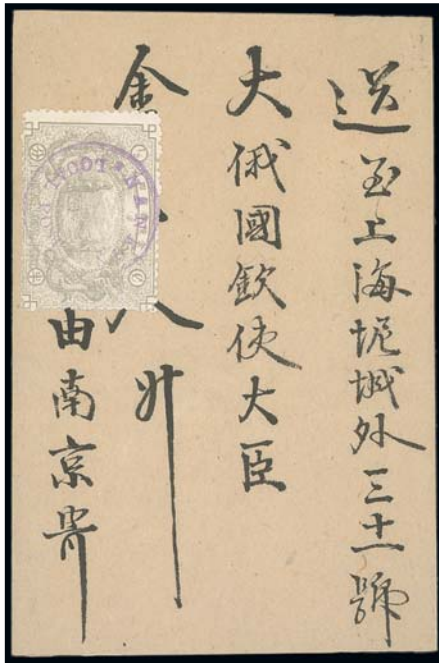 送至上海坭城外三十一號
大俄國欽使大臣
金大人升
由南京寄
LOCAL PO
NANK